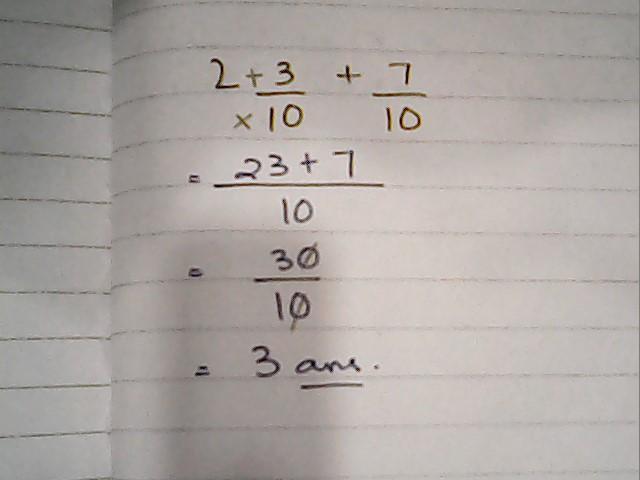 2 + 3 + 7
× 10 10
= 23 + 7
10
= 30
10
= 3 ans.